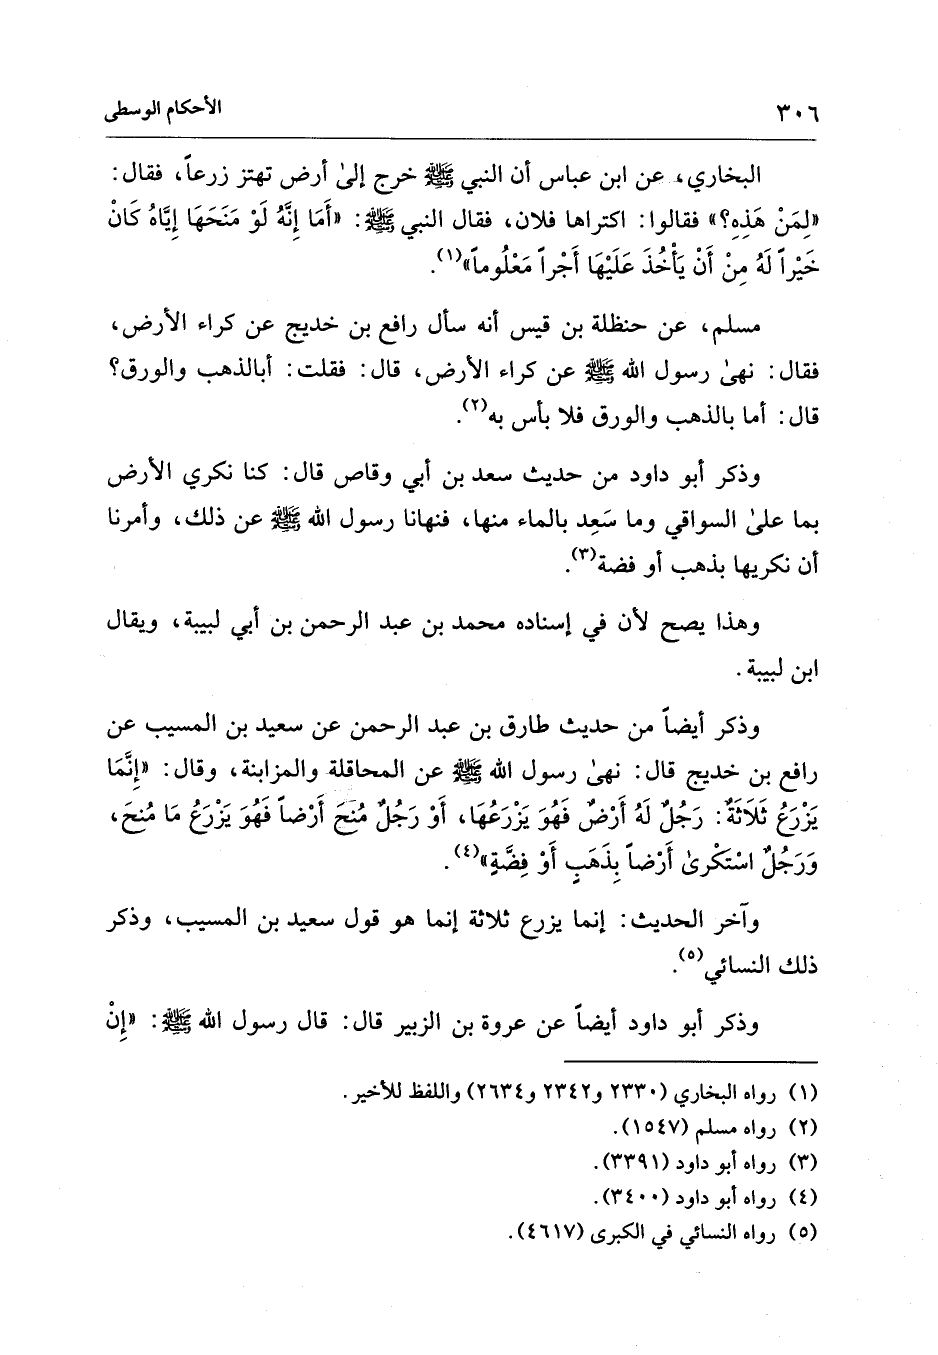 ٣٠٦ الأحكام الوسطى
البخاري، عن ابن عباس أن النبي ﷺ خرج إلىٰ أرض تهتز زرعاً، فقال:
«لِمَنْ هَذِهِ؟» فقالوا: اكتراها فلان، فقال النبي ﷺ: «أَمَا إِنَّهُ لَوْ مَنَحَهَا إِيَّاهُ كَانْ
خَيْراً لَهُ مِنْ أَنْ يَأْخُذَ عَلَيْهَا أَجْراً مَعْلُوماً»(١).
مسلم، عن حنظلة بن قيس أنه سأل رافع بن خديج عن كراء الأرض،
فقال: نهىٰ رسول الله ﷺ عن كراء الأرض، قال: فقلت: أبالذهب والورق؟
قال: أما بالذهب والورق فلا بأس به(٢).
وذكر أبو داود من حديث سعد بن أبي وقاص قال: كنا نكري الأرض
بما علىٰ السواقي وما سَعِد بالماء منها، فنهانا رسول الله ﷺ عن ذلك، وأمرنا
أن نكريها بذهب أو فضة(٣).
وهذا يصح لأن في إسناده محمد بن عبد الرحمن بن أبي لبيبة، ويقال
ابن لبيبة.
وذكر أيضاً من حديث طارق بن عبد الرحمن عن سعيد بن المسيب عن
رافع بن خديج قال: نهىٰ رسول الله ﷺ عن المحاقلة والمزابنة، وقال: «إِنَّمَا
يَزْرَعُ ثَلَاثَةٌ: رَجُلٌ لَهُ أَرْضٌ فَهُوَ يَزْرَعُهَا، أَوْ رَجُلٌ مُنحَ أَرْضاً فَهُوَ يَزْرَعُ مَا مُنحَ،
وَرَجُلٌ اسْتَكْرىٰ أَرْضاً بِذَهَبٍ أَوْ فِضَّةٍ»(٤).
وآخر الحديث: إنما يزرع ثلاثة إنما هو قول سعيد بن المسيب، وذكر
ذلك النسائي(٥).
وذكر أبو داود أيضاً عن عروة بن الزبير قال: قال رسول الله ﷺ: «إِنْ
(١) رواه البخاري (٢٣٣٠ و٢٣٤٢ و٢٦٣٤) واللفظ للأخير.
(٢) رواه مسلم (١٥٤٧).
(٣) رواه أبو داود (٣٣٩١).
(٤) رواه أبو داود (٣٤٠٠).
(٥) رواه النسائي في الكبرى (٤٦١٧).